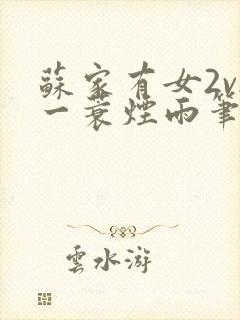 蘇家有女2v
一蓑煙雨筆
雲水游